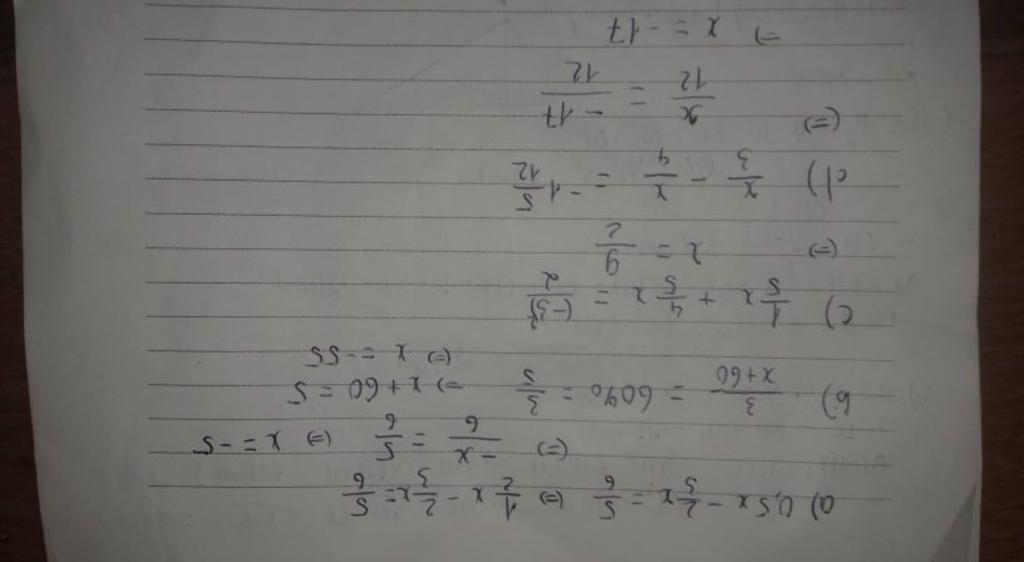 a) 0,5x - 2/3 x = 5/6 (=) 1/2 x - 2/3 x = 5/6
(=) -x/6 = 5/6 (=) x = -5
b) 3/x+60 = 60% = 3/5 =) x+60 = 5
(=) x = -55
c) 1/5 x + 4/5 x = (-3)²/2
(=) x = 9/2
d) x/3 - x/4 = -1 5/12
(=) x/12 = -17/12
=) x = -17